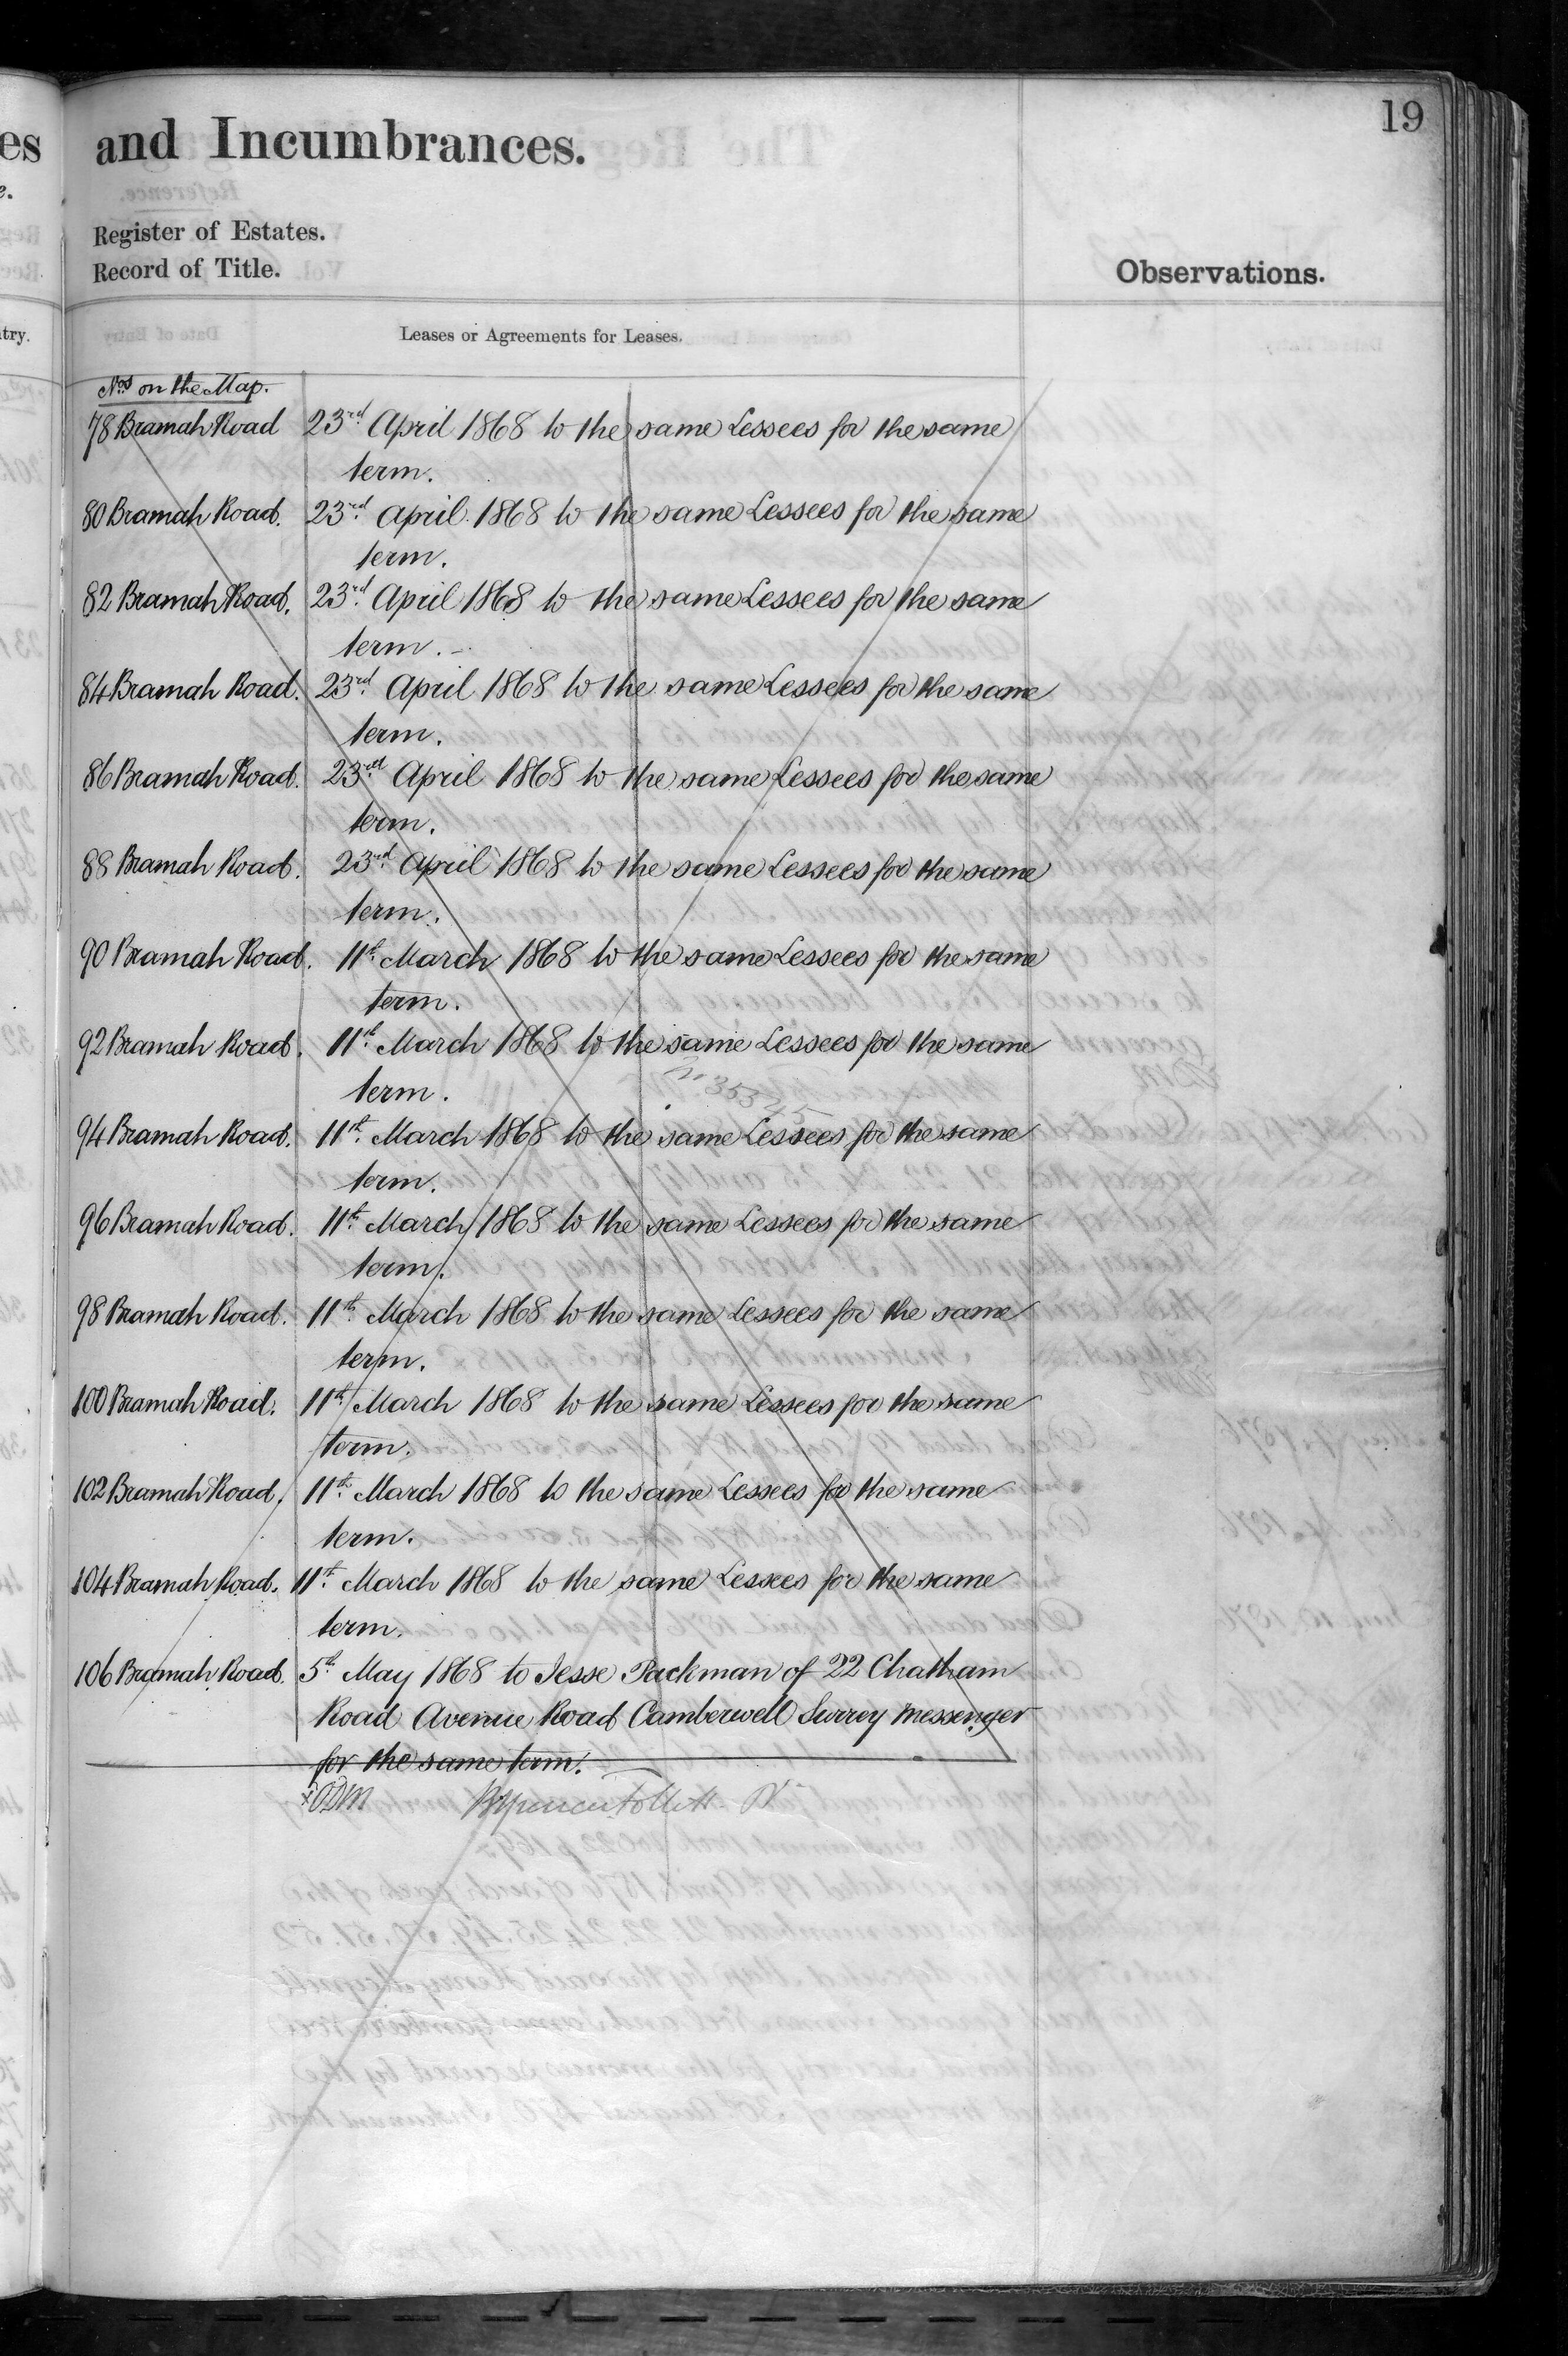 19
and Incumbrances.
Register of Estates.
Record of Title.
Observations.
Leases or Agreements for Leases.
Nos on the Map.
78 Bramah Road 23rd April 1868 to the same Lessees for the same
term.
80 Bramah Road. 23rd April 1868 to the same Lessees for the same
term.
82 Bramah Road. 23rd April 1868 to the same Lessees for the same
term.-
84 Bramah Road. 23rd April 1868 to the same Lessees for the same
term.
86 Bramah Road. 23rd April 1868 to the same Lessees for the same
term.
88 Bramah Road. 23rd April 1868 to the same Lessees for the same
term.
90 Bramah Road. 11th March 1868 to the same Lessees for the same
term.
92 Bramah Road. 11th March 1868 to the same Lessees for the same
term.
94 Bramah Road. 11th March 1868 to the same Lessees for the same
term.
96 Bramah Road. 11th March 1868 to the same Lessees for the same
term.
98 Bramah Road. 11th March 1868 to the same Lessees for the same
term.
100 Bramah Road. 11th March 1868 to the same Lessees for the same
term.
102 Bramah Road, 11th March 1868 to the same Lessees for the same
term.
104 Bramah Road. 11th March 1868 to the same Lessees for the same
term.
106 Bramah Road. 5th May 1868 to Jesse Packman of 22 Chatham
Road Avenue Road Camberwell Surrey Messenger
for the same term.